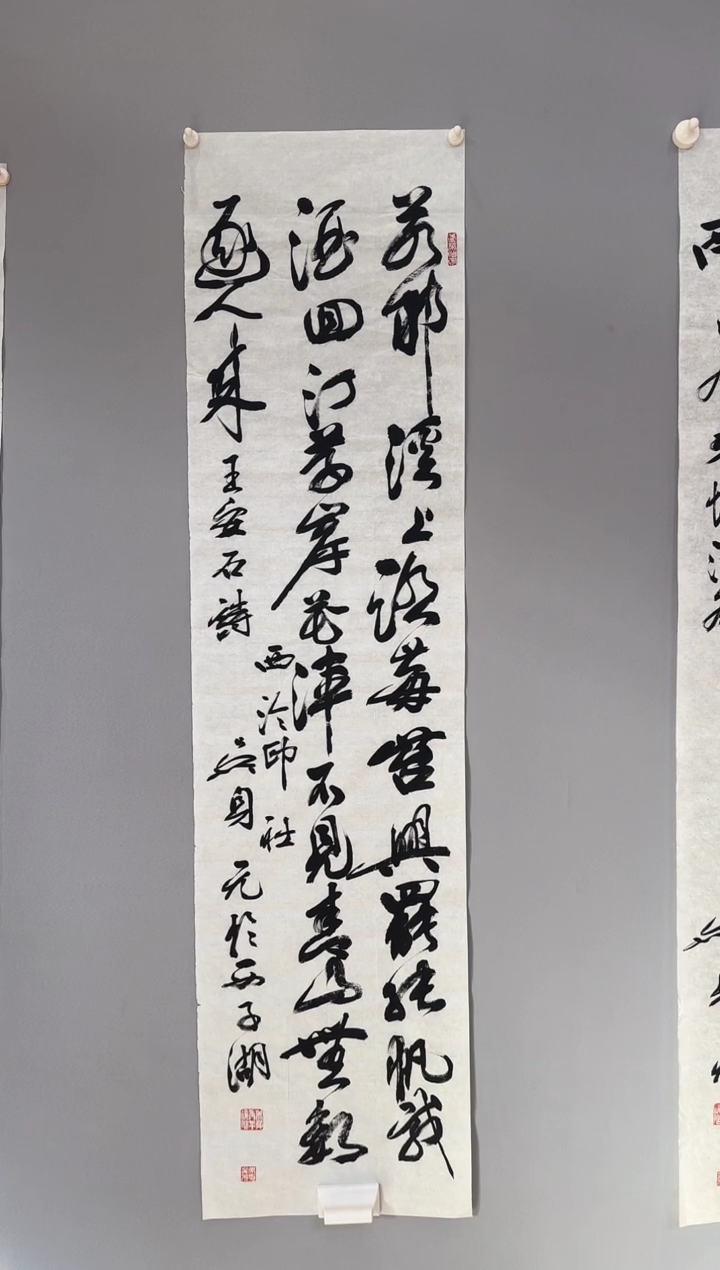 若耶溪上踏莓苔興罷張帆載
酒回汀草岸花渾不見青山無數
逐人來 王安石詩
西泠印社
吴身元於西子湖